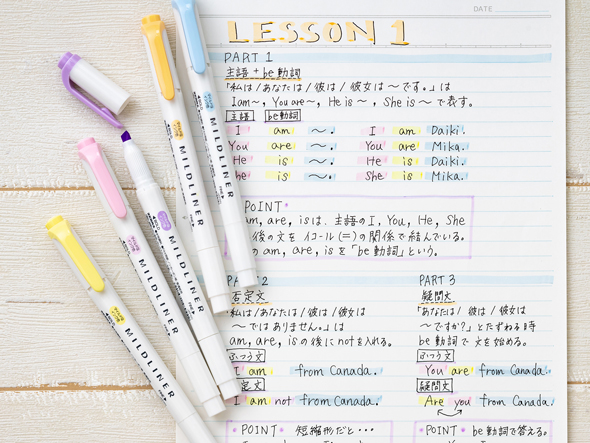 DATE
LESSON 1
PART 1
主語 + be動詞
「私は/あなたは/彼は/彼女は〜です。」は
I am〜, You are〜, He is〜, She is〜で表す。
主語 be動詞
I am 〜. I am Daiki.
You are 〜. You are Mika.
He is 〜. He is Daiki.
She is 〜. She is Mika.
POINT
am, are, isは、主語のI, You, He, She
後の文をイコール(=)の関係で結んでいる。
am, are, isを「be動詞」という。
2
否定文
「私は/あなたは/彼は/彼女は
〜ではありません。」は
am, are, isの後にnotを入れる。
ふつう文
I am from Canada.
定文
I am not from Canada.
POINT 短縮形だと・・・
PART 3
疑問文
「あなたは/彼は/彼女は
〜ですか?」とたずねる時
be動詞で文を始める。
ふつう文
You are from Canada.
疑問文
Are you from Canada.
POINT be動詞で答える。
MILDLINER
MILDLINER
MILDLINER
MILDLINER
MILDLINER